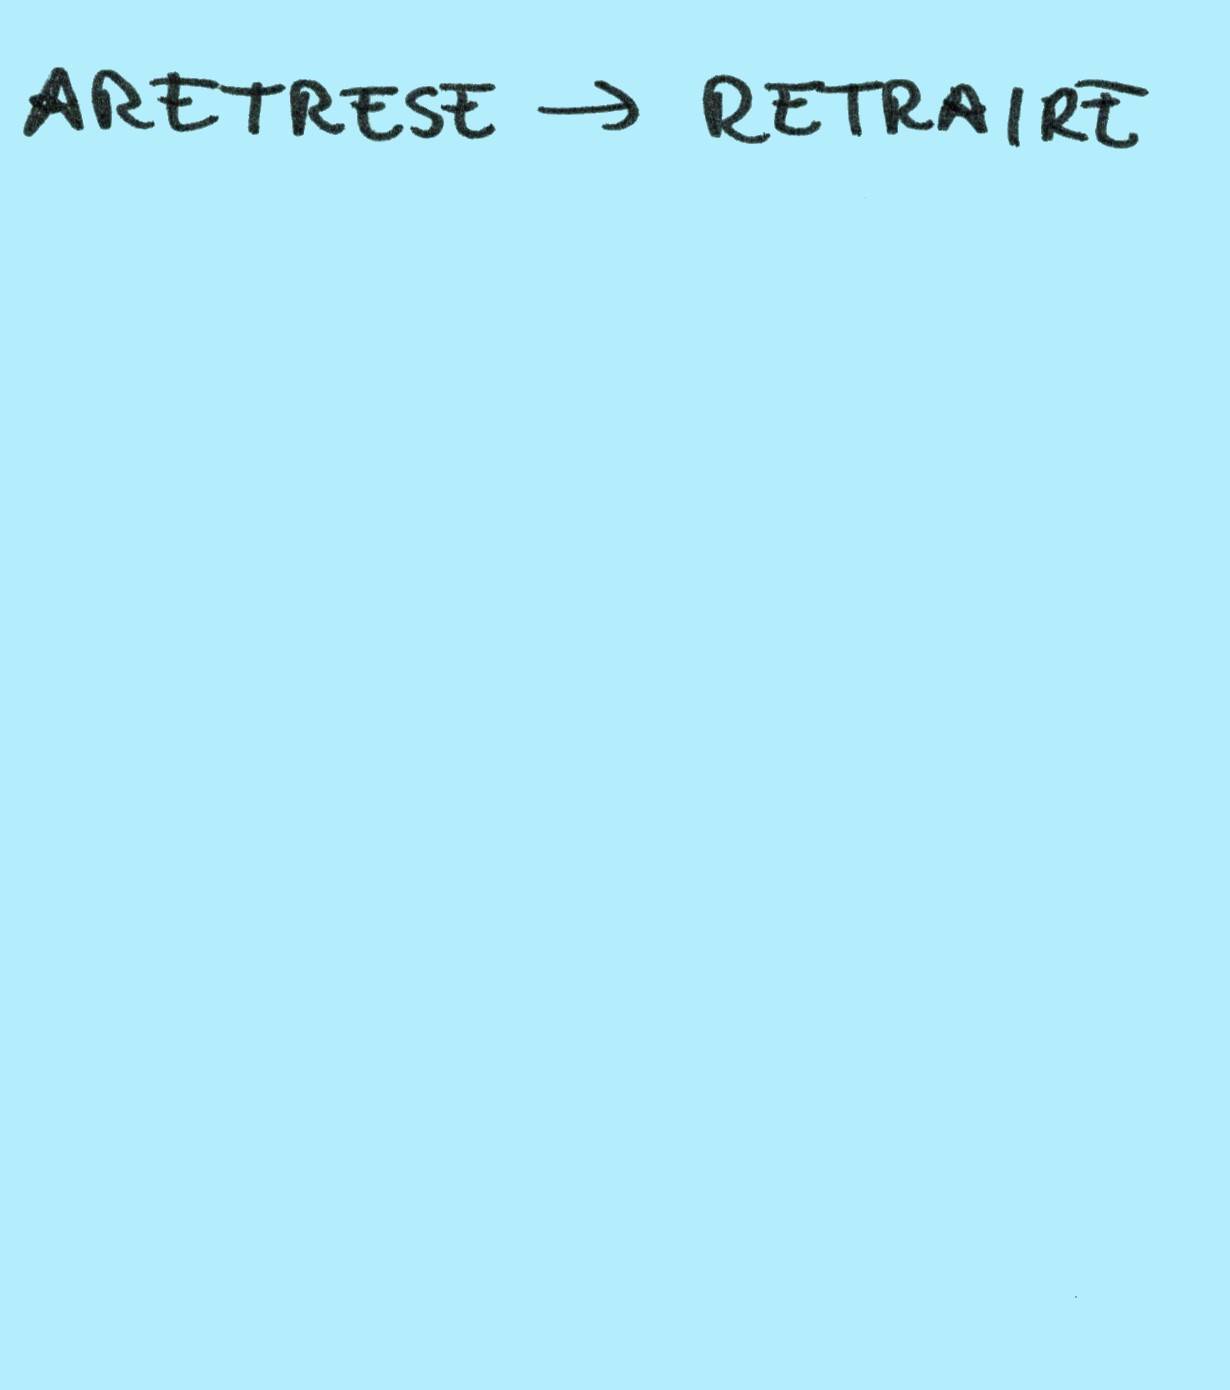 ARETRESE → RETRAIRE